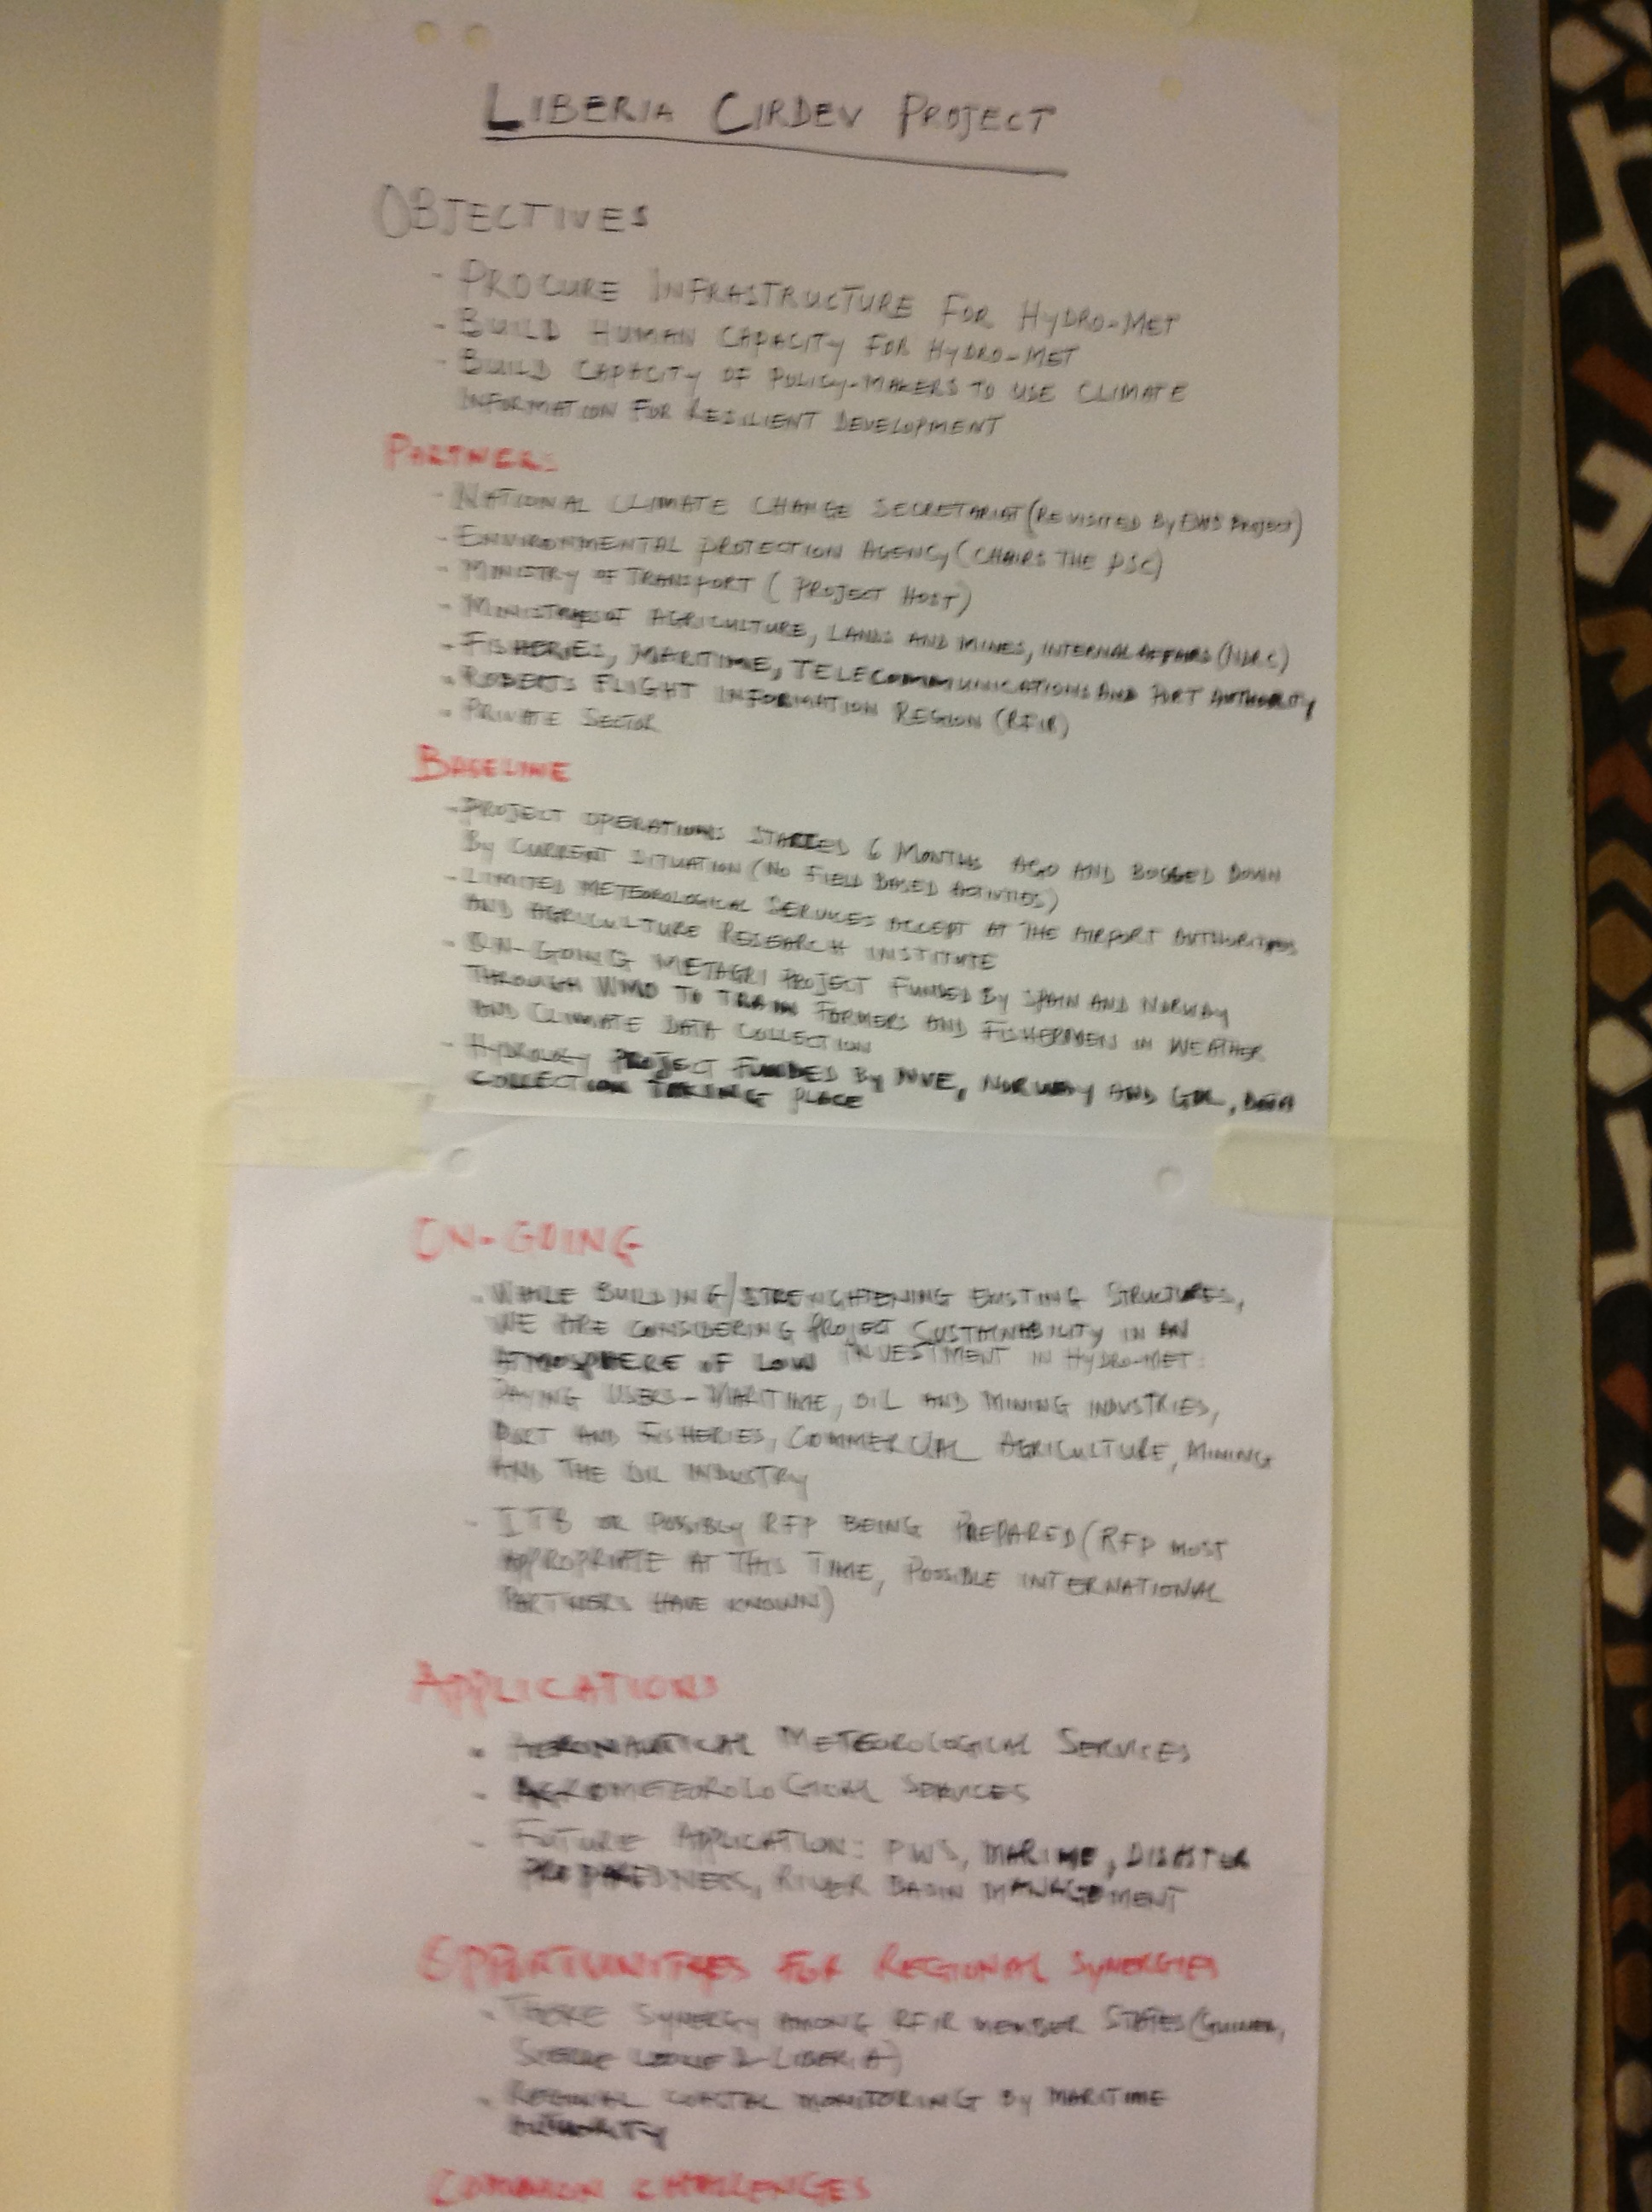 LIBERIA CIRDEV PROJECT
OBJECTIVES
- PROCURE INFRASTRUCTURE FOR HYDRO-MET
- BUILD HUMAN CAPACITY FOR HYDRO-MET
- BUILD CAPACITY OF POLICY-MAKERS TO USE CLIMATE
INFORMATION FOR RESILIENT DEVELOPMENT
PARTNERS
- NATIONAL CLIMATE CHANGE SECRETARIAT (REVISITED BY EWS PROJECT)
- ENVIRONMENTAL PROTECTION AGENCY (CHAIRS THE PSC)
- MINISTRY OF TRANSPORT (PROJECT HOST)
- MINISTRIES OF AGRICULTURE, LANDS AND MINES, INTERNAL AFFAIRS (NDRC)
- FISHERIES, MARITIME, TELECOMMUNICATIONS AND PORT AUTHORITY
- ROBERTS FLIGHT INFORMATION REGION (RFIR)
- PRIVATE SECTOR
BASELINE
- PROJECT OPERATIONS STARTED 6 MONTHS AGO AND BOGGED DOWN
BY CURRENT SITUATION (NO FIELD BASED ACTIVITIES)
- LIMITED METEOROLOGICAL SERVICES ACCEPT AT THE AIRPORT AUTHORITIES
AND AGRICULTURE RESEARCH INSTITUTE
- ON-GOING METAGRI PROJECT FUNDED BY SPAIN AND NORWAY
THROUGH WMO TO TRAIN FARMERS AND FISHERMEN IN WEATHER
AND CLIMATE DATA COLLECTION
- HYDROLOGY PROJECT FUNDED BY NVE, NORWAY AND GOL, DATA
COLLECTION TAKING PLACE
ON-GOING
- WHILE BUILDING/STRENGHTENING EXISTING STRUCTURES,
WE ARE CONSIDERING PROJECT SUSTAINABILITY IN AN
ATMOSPHERE OF LOW INVESTMENT IN HYDRO-MET:
PAYING USERS - MARITIME, OIL AND MINING INDUSTRIES,
PORT AND FISHERIES, COMMERCIAL AGRICULTURE, MINING
AND THE OIL INDUSTRY
- ITB OR POSSIBLY RFP BEING PREPARED (RFP MOST
APPROPRIATE AT THIS TIME, POSSIBLE INTERNATIONAL
PARTNERS HAVE KNOWN)
APPLICATIONS
- AERONAUTICAL METEOROLOGICAL SERVICES
- AGROMETEOROLOGICAL SERVICES
- FUTURE APPLICATION: PWS, MARINE, DISASTER
PREPAREDNESS, RIVER BASIN MANAGEMENT
OPPORTUNITIES FOR REGIONAL SYNERGIES
- THERE SYNERGY AMONG RFIR MEMBER STATES (GUINEA,
SIERRE LEONE & LIBERIA)
- REGIONAL COASTAL MONITORING BY MARITIME
AUTHORITY
COMMON CHALLENGES